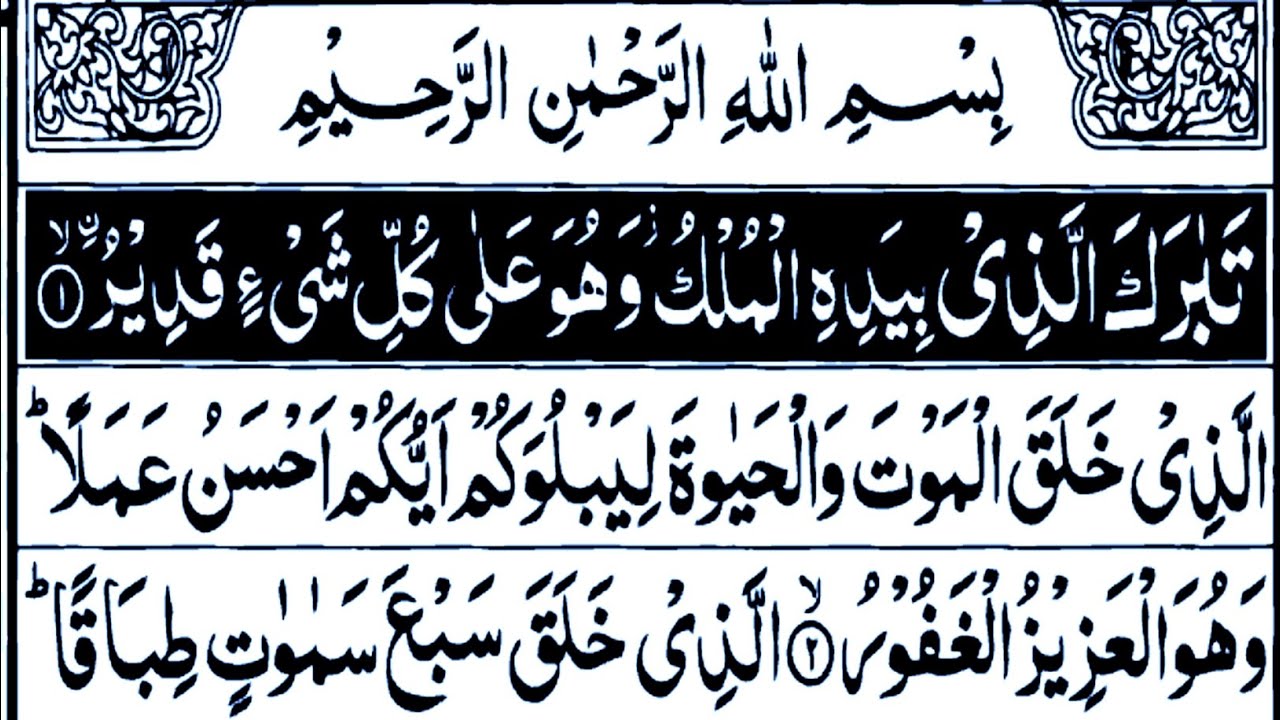 بِسْمِ اللّٰهِ الرَّحْمٰنِ الرَّحِیْمِ
تَبٰرَكَ الَّذِیْ بِیَدِهِ الْمُلْكُ ؗ وَ هُوَ عَلٰی كُلِّ شَیْءٍ قَدِیْرُ ۙ۟ ﴿۱﴾
الَّذِیْ خَلَقَ الْمَوْتَ وَ الْحَیٰوةَ لِیَبْلُوَكُمْ اَیُّكُمْ اَحْسَنُ عَمَلًا ؕ
وَ هُوَ الْعَزِیْزُ الْغَفُوْرُ ۙ ﴿۲﴾ الَّذِیْ خَلَقَ سَبْعَ سَمٰوٰتٍ طِبَاقًا ؕ